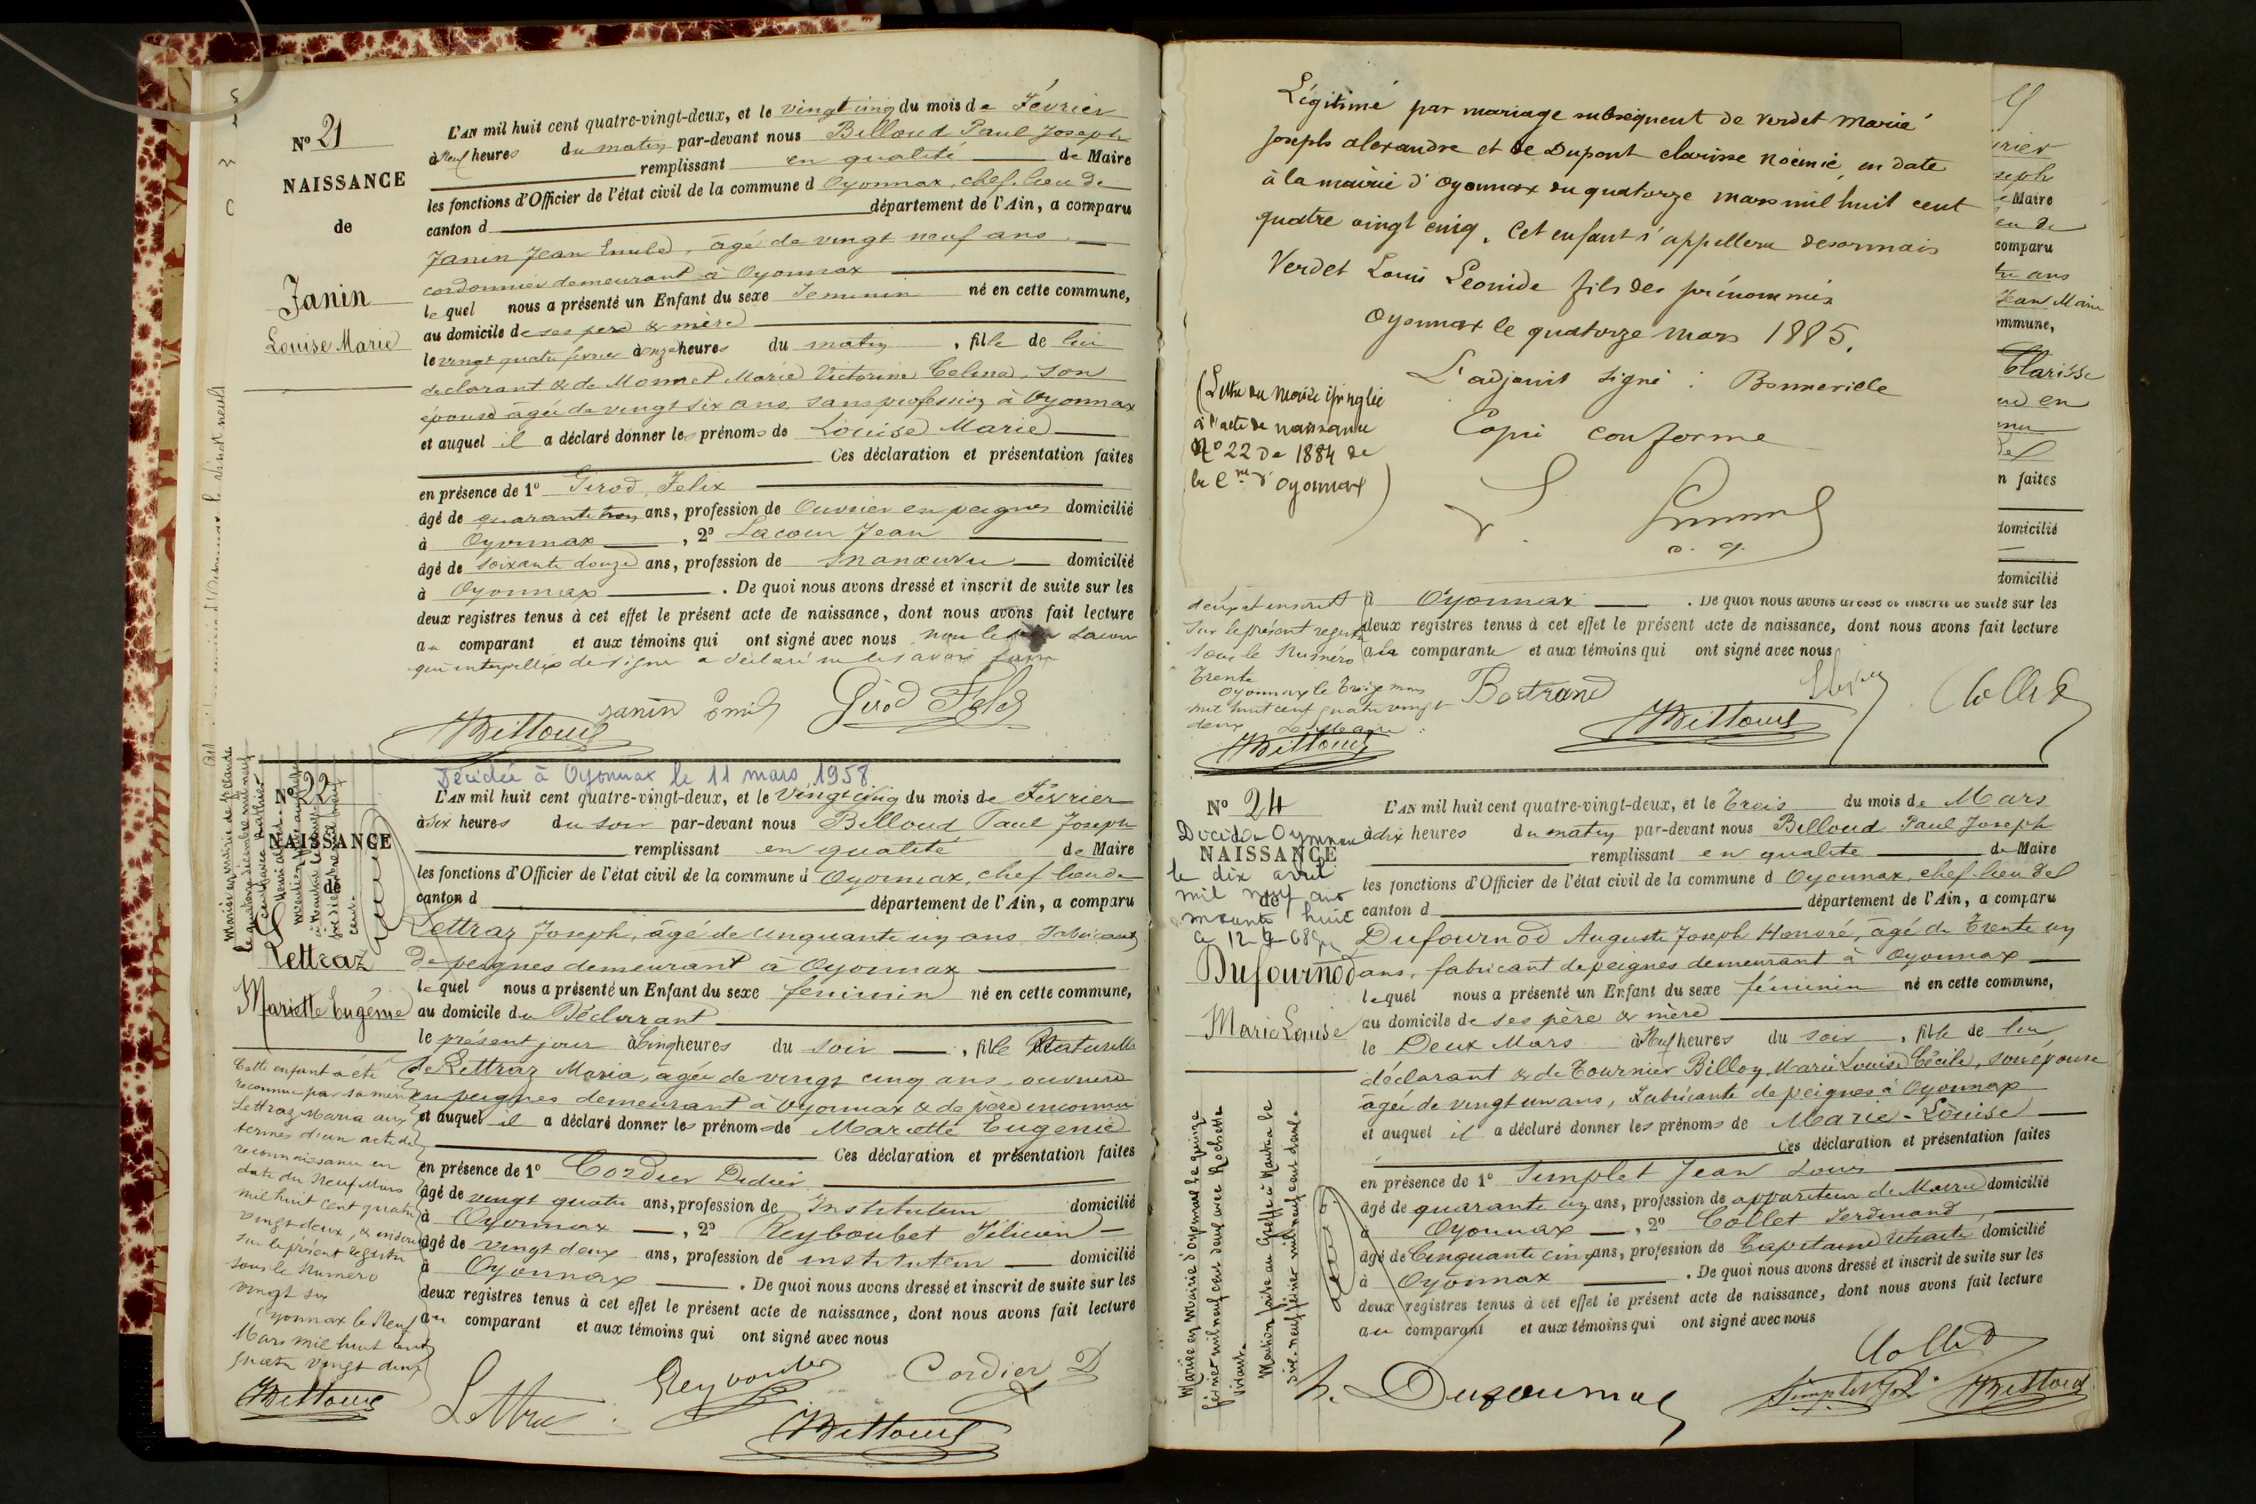 Nº 21
NAISSANCE
de
Janin
Louise Marie
L'AN mil huit cent quatre-vingt-deux, et le vingt cinq du mois de Février
à neuf heures du matin par-devant nous Billoud Paul Joseph
remplissant en qualité de Maire
les fonctions d'Officier de l'état civil de la commune d Oyonnax, chef-lieu de
canton d département de l'Ain, a comparu
Janin Jean Emile, âgé de vingt neuf ans
cordonnier demeurant à Oyonnax
lequel nous a présenté un Enfant du sexe Feminin né en cette commune,
au domicile de ses père & mère
le vingt quatre fevrier à onze heures du matin, fille de lui
declarant & de Monnet Marie Victorine Celina, son
épouse âgée de vingt six ans, sans profession à Oyonnax
et auquel il a déclaré donner les prénoms de Louise Marie
Ces déclaration et présentation faites
en présence de 1º Girod, Felix
âgé de quarante trois ans, profession de Ouvrier en peignes domicilié
à Oyonnax, 2º Lacour Jean
âgé de soixante douze ans, profession de manœuvre domicilié
à Oyonnax. De quoi nous avons dressé et inscrit de suite sur les
deux registres tenus à cet effet le présent acte de naissance, dont nous avons fait lecture
au comparant et aux témoins qui ont signé avec nous non le Lacour
qui interpellé de signer a déclaré ne le savoir faire
Janin Emile Girod Felix
Billoud
Nº 22
NAISSANCE
de
Lettraz
Mariette Eugénie
Décédée à Oyonnax le 11 mars 1958
L'AN mil huit cent quatre-vingt-deux, et le Vingt cinq du mois de Février
à six heures du soir par-devant nous Billoud Paul Joseph
remplissant en qualité de Maire
les fonctions d'Officier de l'état civil de la commune d Oyonnax, chef lieu de
canton d département de l'Ain, a comparu
Lettraz Joseph, âgé de Cinquante un ans, Fabricant
de peignes demeurant à Oyonnax
lequel nous a présenté un Enfant du sexe féminin né en cette commune,
au domicile du Déclarant
le présent jour à Cinq heures du soir, fille Naturelle
de Lettraz Maria, âgée de vingt cinq ans, ouvrière
en peignes demeurant à Oyonnax & de père inconnu
et auquel il a déclaré donner les prénoms de Mariette Eugénie
Ces déclaration et présentation faites
en présence de 1º Cordier Didier
âgé de vingt quatre ans, profession de Instituteur domicilié
à Oyonnax, 2º Reyboubet Félicien
âgé de vingt deux ans, profession de instituteur domicilié
à Oyonnax. De quoi nous avons dressé et inscrit de suite sur les
deux registres tenus à cet effet le présent acte de naissance, dont nous avons fait lecture
au comparant et aux témoins qui ont signé avec nous
Cette enfant a été
reconnue par sa mère
Lettraz Maria aux
termes d'un acte de
reconnaissance en
date du Neuf Mars
mil huit cent quatre
vingt deux, & inscrit
sur le présent registre
sous le Numéro
vingt six
Oyonnax le Neuf
Mars mil huit cent
quatre vingt deux
Billoud
Lettraz Cordier D
Billoud
Légitimé par mariage subséquent de Verdet Marie
Joseph Alexandre et de Dupont Clarisse Noémie, en date
à la mairie d'Oyonnax du quatorze mars mil huit cent
quatre vingt cinq. Cet enfant s'appellera désormais
Verdet Louis Léonide fils des prénommés
Oyonnax le quatorze mars 1885.
L'adjoint signé : Bonneville
Copie conforme
(Lettre du Maire épinglée
à l'acte de naissance
Nº 22 de 1884 de
la Cne d'Oyonnax)
Maire
comparu
Jean Marie
Clarisse
faites
domicilié
domicilié
à Oyonnax. De quoi nous avons dressé et inscrit de suite sur les
deux registres tenus à cet effet le présent acte de naissance, dont nous avons fait lecture
à la comparante et aux témoins qui ont signé avec nous
deux et inscrit
sur le présent registre
sous le Numéro
Trente
Oyonnax le Treize mars
mil huit cent quatre vingt
deux
Billoud
Bertrand Collet
Billoud
Nº 24
NAISSANCE
de
Dufournod
Marie Louise
Décédée Oyonnax
le dix avril
mil neuf cent
soixante huit
L'AN mil huit cent quatre-vingt-deux, et le Trois du mois de Mars
à dix heures du matin par-devant nous Billoud Paul Joseph
remplissant en qualité de Maire
les fonctions d'Officier de l'état civil de la commune d Oyonnax, chef-lieu de
canton d département de l'Ain, a comparu
Dufournod Auguste Joseph Honoré, âgé de Trente un
ans, fabricant de peignes demeurant à Oyonnax
lequel nous a présenté un Enfant du sexe féminin né en cette commune,
au domicile de ses père & mère
le Deux Mars à Neuf heures du soir, fille de lui
déclarant & de Tournier Billon Marie Louise Cécile, son épouse
âgée de vingt un ans, Fabricante de peignes à Oyonnax
et auquel il a déclaré donner les prénoms de Marie-Louise
Ces déclaration et présentation faites
en présence de 1º Simplet Jean Louis
âgé de quarante un ans, profession de appariteur de Mairie domicilié
à Oyonnax, 2º Collet Ferdinand
âgé de Cinquante cinq ans, profession de Capitaine retraité domicilié
à Oyonnax. De quoi nous avons dressé et inscrit de suite sur les
deux registres tenus à cet effet le présent acte de naissance, dont nous avons fait lecture
au comparant et aux témoins qui ont signé avec nous
Mariée en Mairie d'Oyonnax le quinze
février mil neuf cent deux avec Rochette
Mention faite au Greffe à Nantua le
dix-neuf février mil neuf cent deux.
h. Dufournod Collet
Simplet Billoud